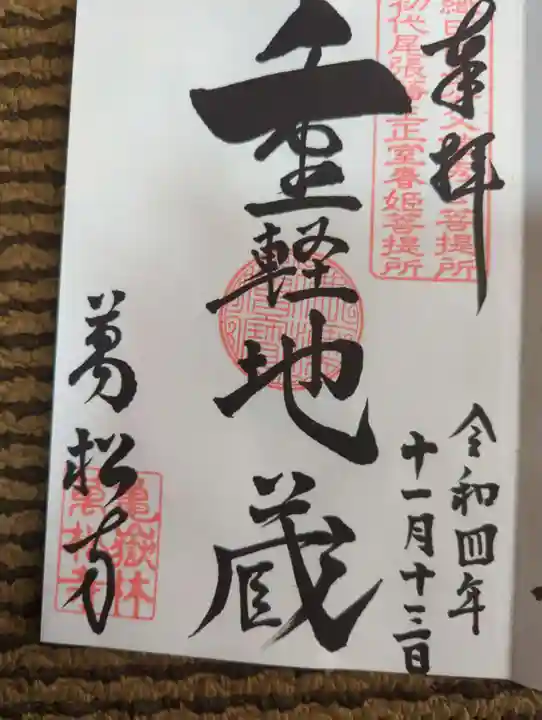 奉拝
令和四年
十一月十三日
織田
菩提所
初代尾張藩主正室春姫菩提所
重軽地蔵
萬松寺
亀嶽林
萬松寺